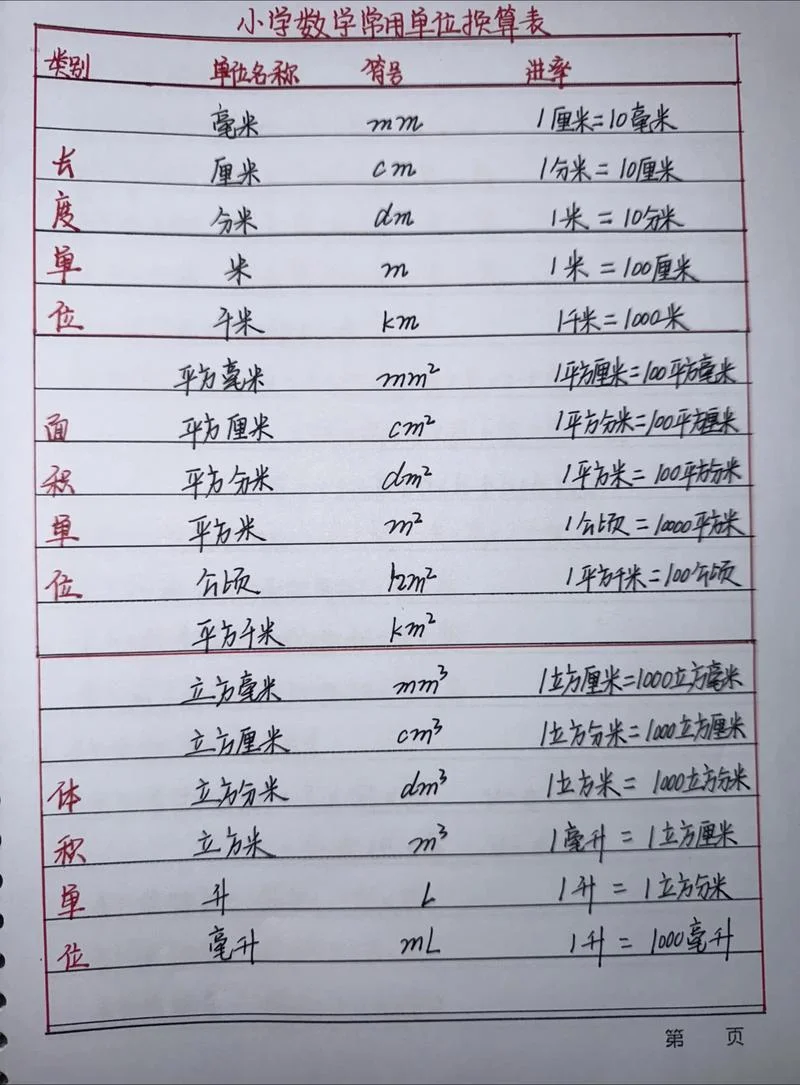 小学数学常用单位换算表
类别 单位名称 符号 进率
毫米 mm 1厘米=10毫米
长 厘米 cm 1分米=10厘米
度 分米 dm 1米=10分米
单 米 m 1米=100厘米
位 千米 km 1千米=1000米
平方毫米 mm² 1平方厘米=100平方毫米
面 平方厘米 cm² 1平方分米=100平方厘米
积 平方分米 dm² 1平方米=100平方分米
单 平方米 m² 1公顷=10000平方米
位 公顷 hm² 1平方千米=100公顷
平方千米 km²
立方毫米 mm³ 1立方厘米=1000立方毫米
立方厘米 cm³ 1立方分米=1000立方厘米
体 立方分米 dm³ 1立方米=1000立方分米
积 立方米 m³ 1毫升=1立方厘米
单 升 L 1升=1立方分米
位 毫升 mL 1升=1000毫升
第 页